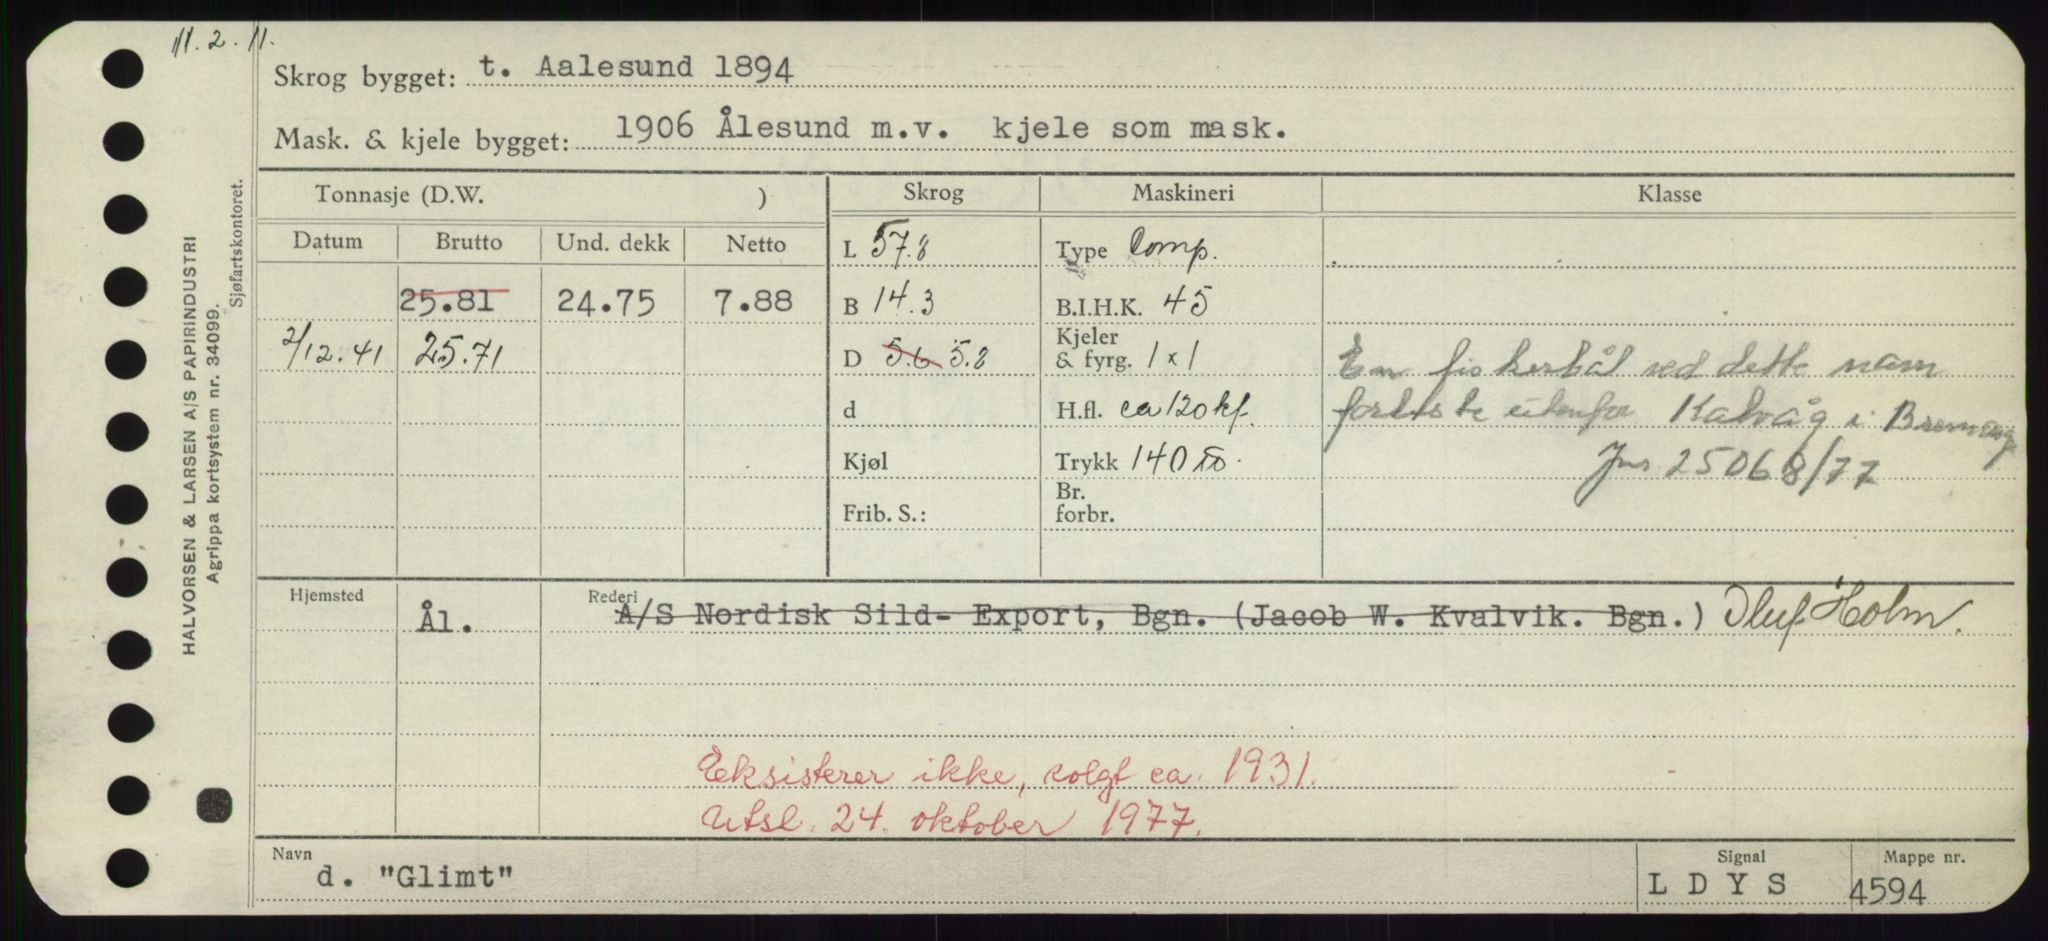 11.2.11.
Skrog bygget: t. Aalesund 1894
Mask. & kjele bygget: 1906 Ålesund m.v. kjele som mask.
Tonnasje (D.W. ) Skrog Maskineri Klasse
Datum Brutto Und. dekk Netto L 57.8 Type Comp.
25.81 24.75 7.88 B 14.3 B.I.H.K. 45
2/12.41 25.71 D 5.6 5.8 Kjeler & fyrg. 1x1 En fiskerbåt ved dette navn
d H.fl. ca 120 kf. forliste utenfor Kalvåg i Bremanger
Kjøl Trykk 140 lb. Jnr 25068/77
Frib. S.: Br. forbr.
Hjemsted Ål. Rederi A/S Nordisk Sild- Export, Bgn. (Jacob W. Kvalvik. Bgn.) Oluf Holm.
Eksisterer ikke, solgt ca. 1931.
Utsl. 24. oktober 1977.
Navn Signal Mappe nr.
d. "Glimt" L D Y S 4594
HALVORSEN & LARSEN A/S PAPIRINDUSTRI
Agrippa kortsystem nr. 34099.
Sjøfartskontoret.